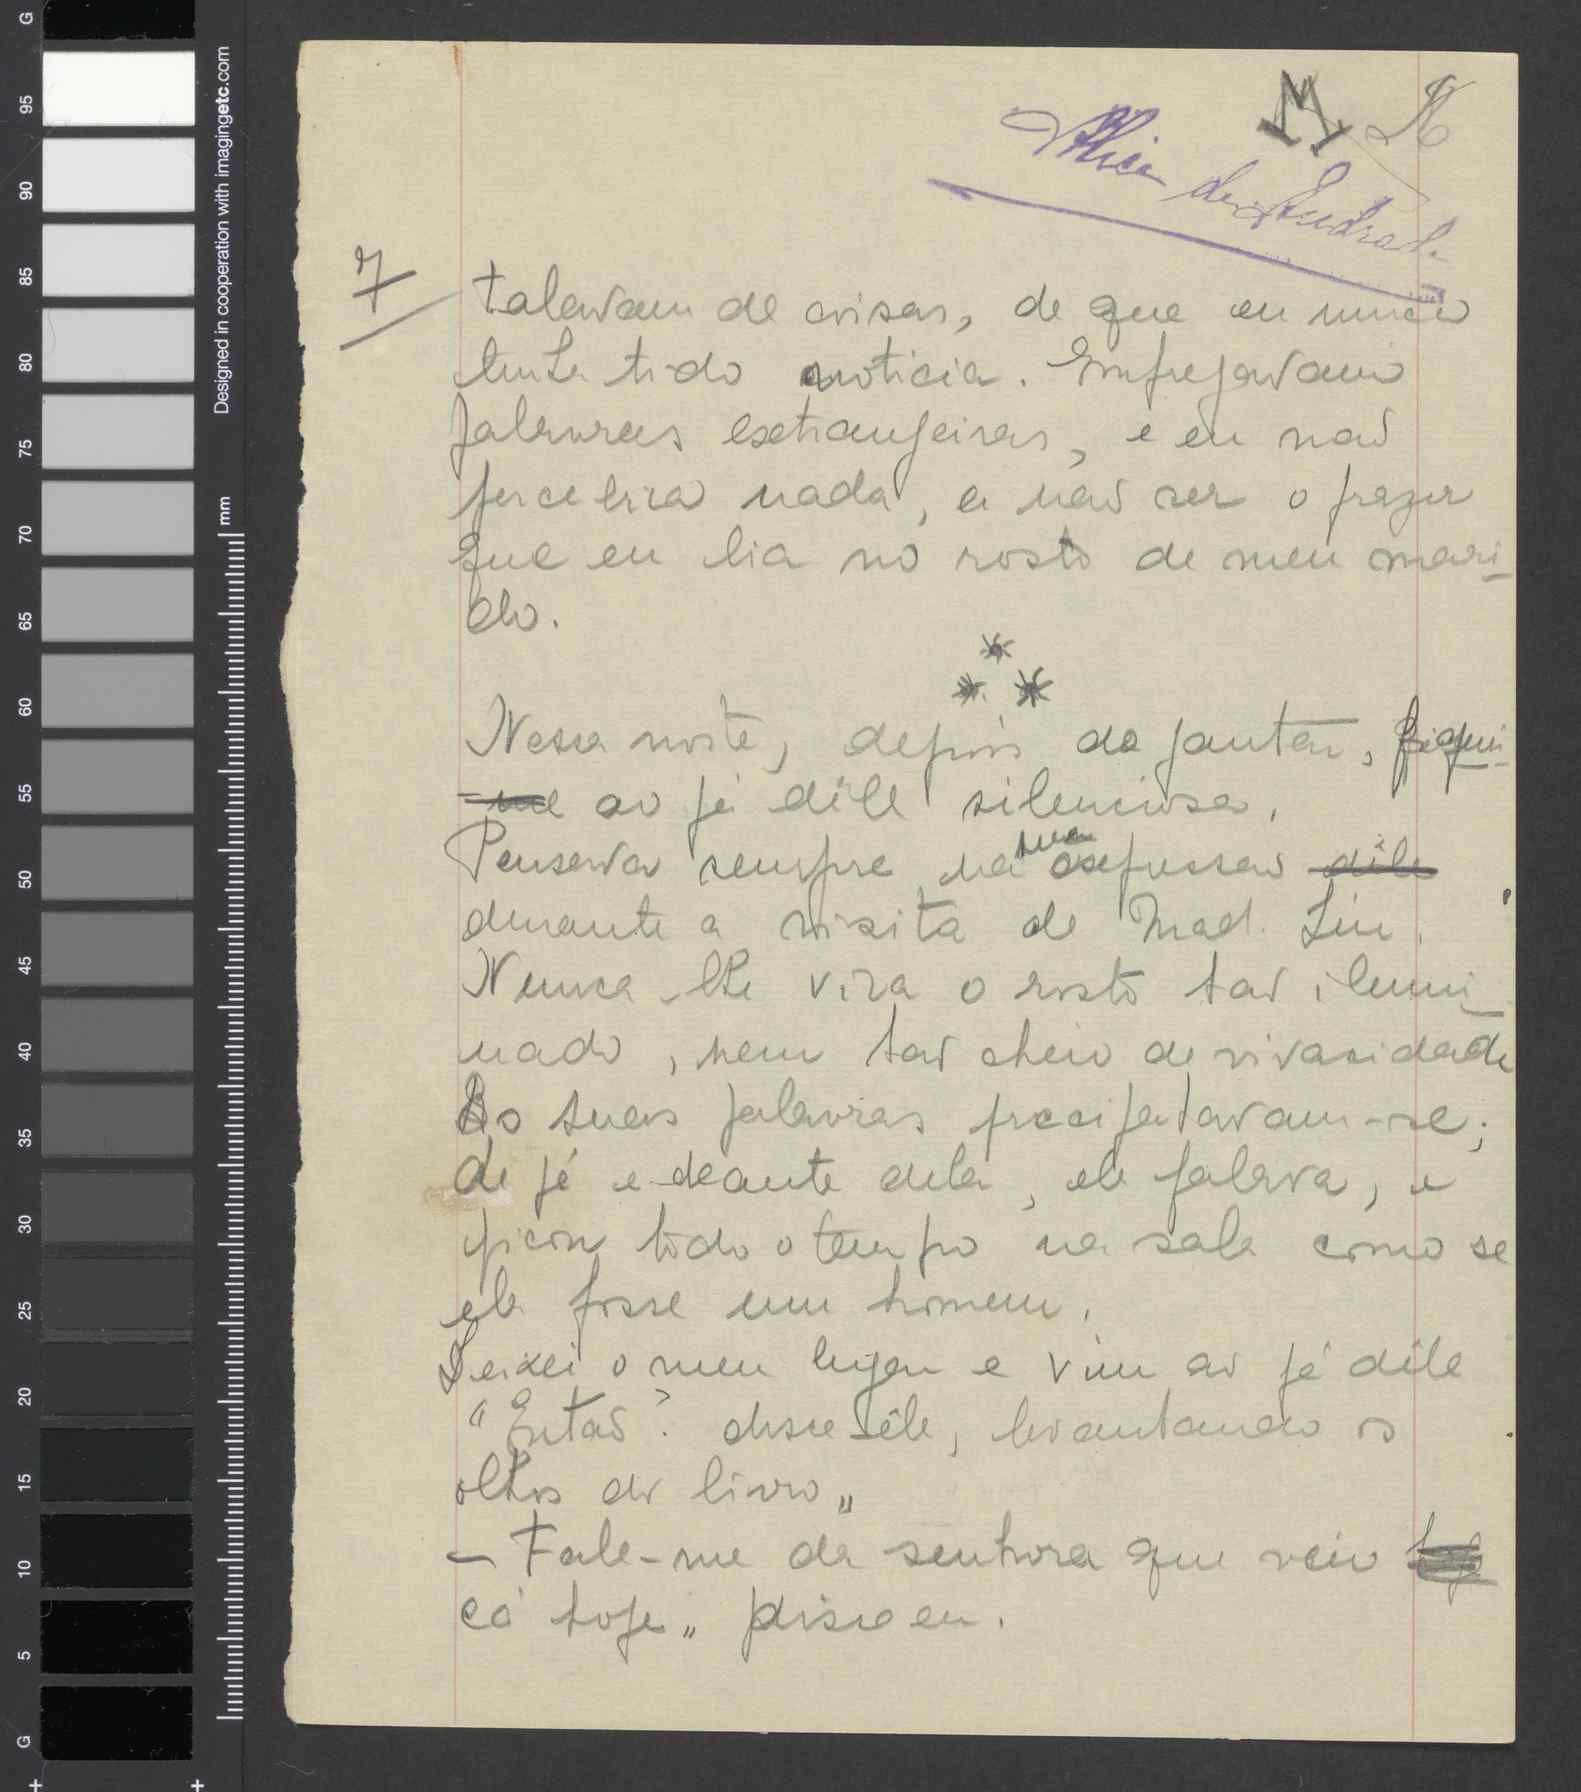 M
de Andrade
7
Falavam de coisas, de que eu nunca
tinha tido noticia. Empregavam
palavras extrangeiras, e eu não
percebia nada, a não ser o prazer
que eu lia no rosto de meu mari-
do.
* * *
Nessa noite, depois do jantar, fiquei
-me ao pé dêle silenciosa.
Pensava sempre na sua expressão dêle
durante a visita de Mad. Liu.
Nunca lhe vira o rosto tão ilumi-
nado, nem tão cheio de vivacidade
As suas palavras precipitavam-se;
de pé e deante dela, ele falava, e
ficou todo o tempo na sala como se
ela fosse um homem.
Deixei o meu lugar e vim ao pé dêle
"Então? disse êle, levantando os
olhos do livro„
— Fale-me da senhora que veio
cá hoje„ disse eu.
G
95
90
85
80
75
70
65
60
55
50
45
40
35
30
25
20
15
10
5
G
Designed in cooperation with imagingetc.com
mm